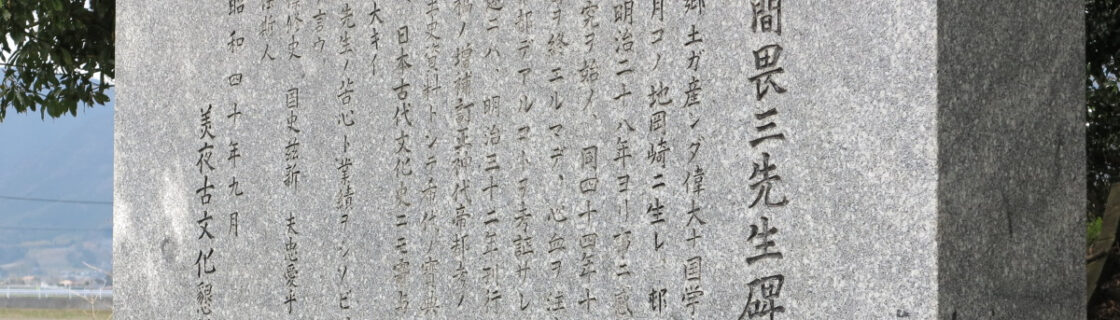 間畏三先生碑
郷土ガ産ンダ偉大ナ国学
月コノ地岡崎ニ生レ、邨
明治二十八年ヨリ
究ヲ始メ、同四十四年十
ヲ終エルマデ、心血ヲ注
都デアルコトヲ考証サレ
ニハ 明治三十二年刊行
稿ノ増補訂正神代帝都考ノ
史資料トシテ希代ノ宝典
日本古代文化史ニモ寄与
大キイ
先生ノ苦心ト業績ヲシノビ
言ウ
修史 国史茲新 夫忠愛平
斯人
昭和四十年九月
美夜古文化懇